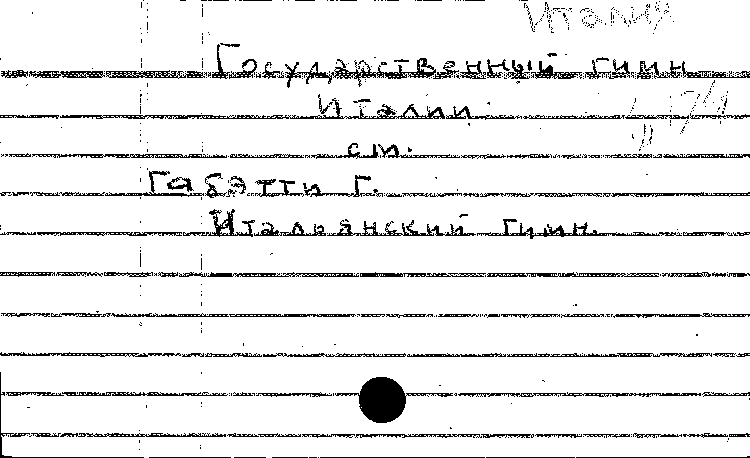 Италия
Государственный гимн
Италии.
см.
Габэтти Г.
Итальянский гимн.